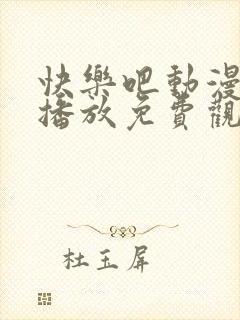 快樂吧動漫
播放免費觀
杜玉屏